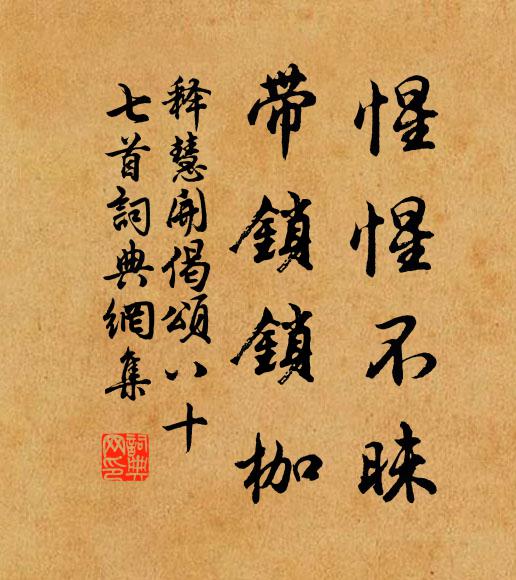 惺惺不昧
带鎖鎖枷
释慧開偈頌八十
七首詞典網集
詞典网印